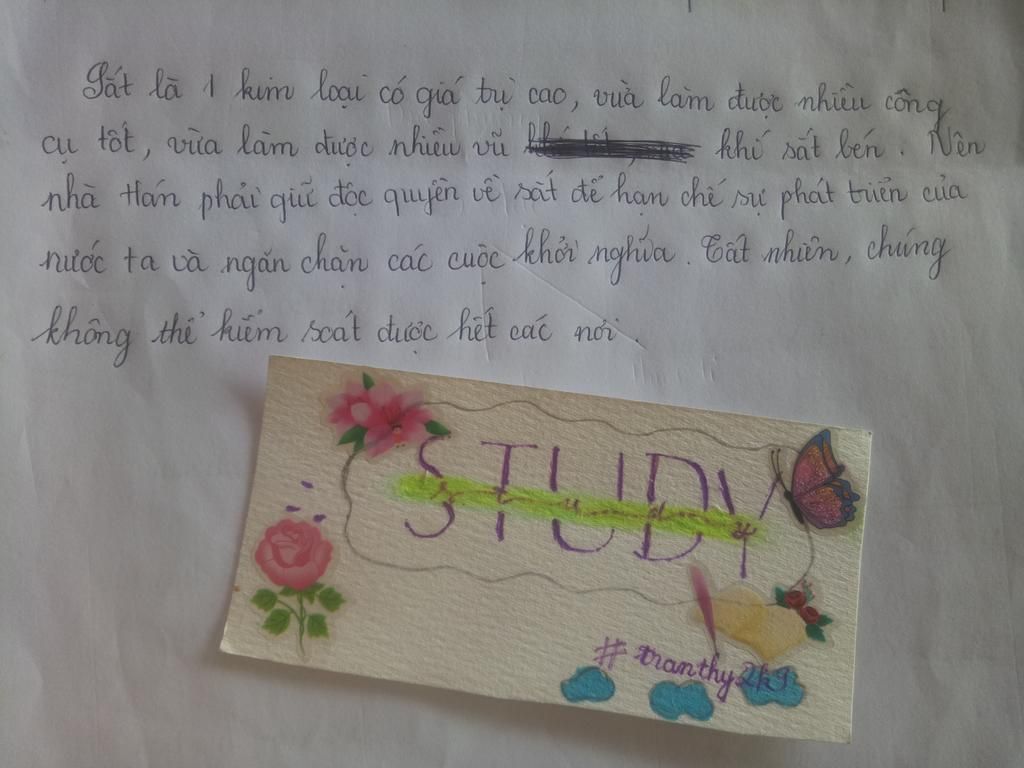 Sắt là 1 kim loại có giá trị cao, vừa làm được nhiều công
cụ tốt, vừa làm được nhiều vũ khí sắt bén. Nên
nhà Hán phải giữ độc quyền về sắt để hạn chế sự phát triển của
nước ta và ngăn chặn các cuộc khởi nghĩa. Tất nhiên, chúng
không thể kiểm soát được hết các nơi.
STUDY
study
#tranthy2k9